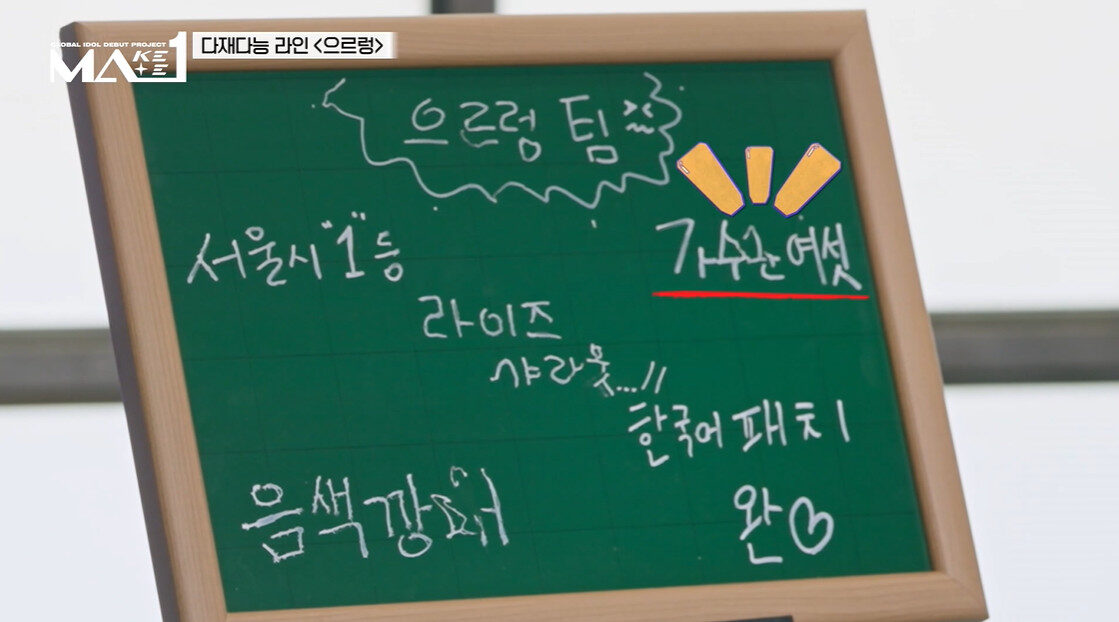 GLOBAL IDOL DEBUT PROJECT
MAKE MATE 1
다재다능 라인 <으르렁>
으르렁 팀
서울시 "1"등
가수관 여섯
라이즈
샤라웃...//
한국어 패치
완♡
음색깡패